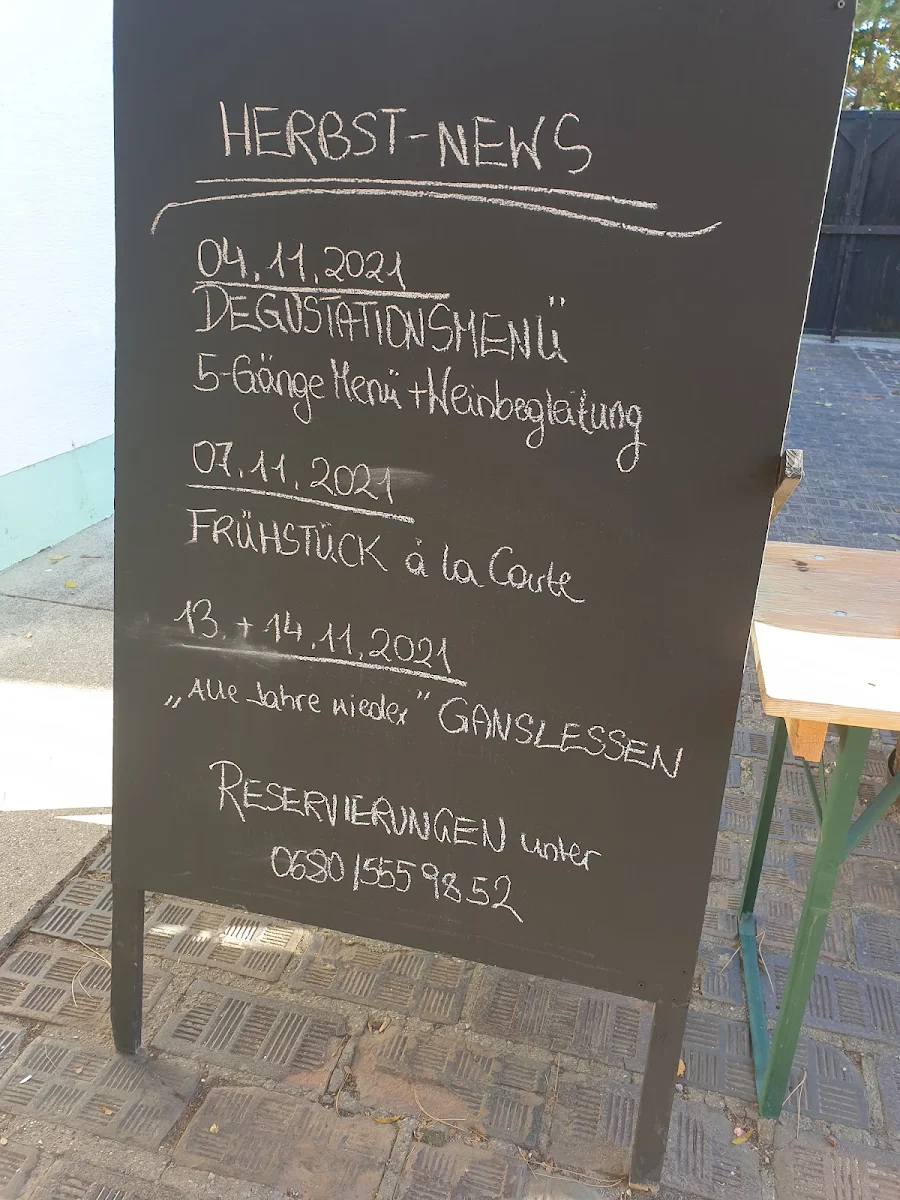 HERBST-NEWS
04.11.2021
DEGUSTATIONSMENÜ
5-Gänge Menü + Weinbegleitung
07.11.2021
FRÜHSTÜCK à la Carte
13. + 14.11.2021
„Alle Jahre wieder" GANSLESSEN
RESERVIERUNGEN unter
0680/5559852